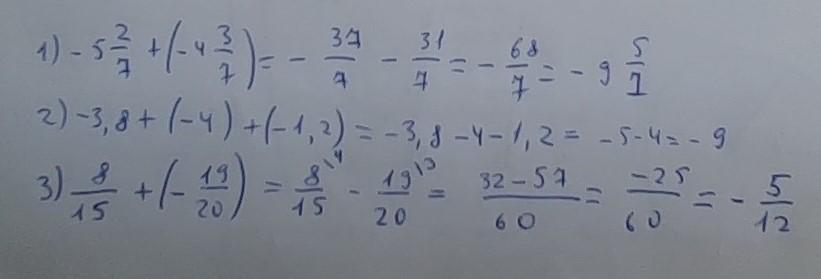 1) -5 2/7 + (-4 3/7) = - 37/7 - 31/7 = - 68/7 = -9 5/7
2) -3,8 + (-4) + (-1,2) = -3,8 - 4 - 1,2 = -5-4 = -9
3) 8/15 + (- 19/20) = 8\4/15 - 19\3/20 = 32-57/60 = -25/60 = - 5/12